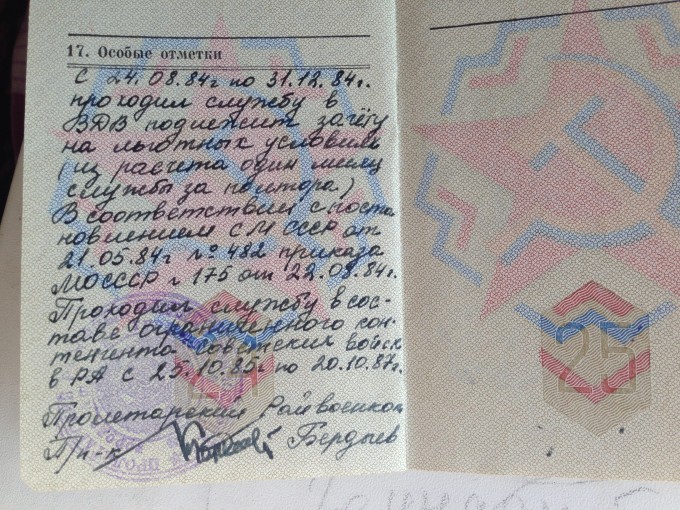 17. Особые отметки
С 24.08.84г по 31.12.84г.
проходил службу в
ВДВ подлежит зачёту
на льготных условиях
(из расчета один месяц
службы за полтора)
В соответствии с поста
новлением СМ СССР от
21.05.84г № 482 приказа
МОСССР г 175 от 22.08.84г.
Проходил службу в сос-
таве ограниченного кон-
тенгента советских войск
в РА с 25.10.85г по 20.10.87г.
Пролетарский Райвоенком
П/п-к Бердыев
25